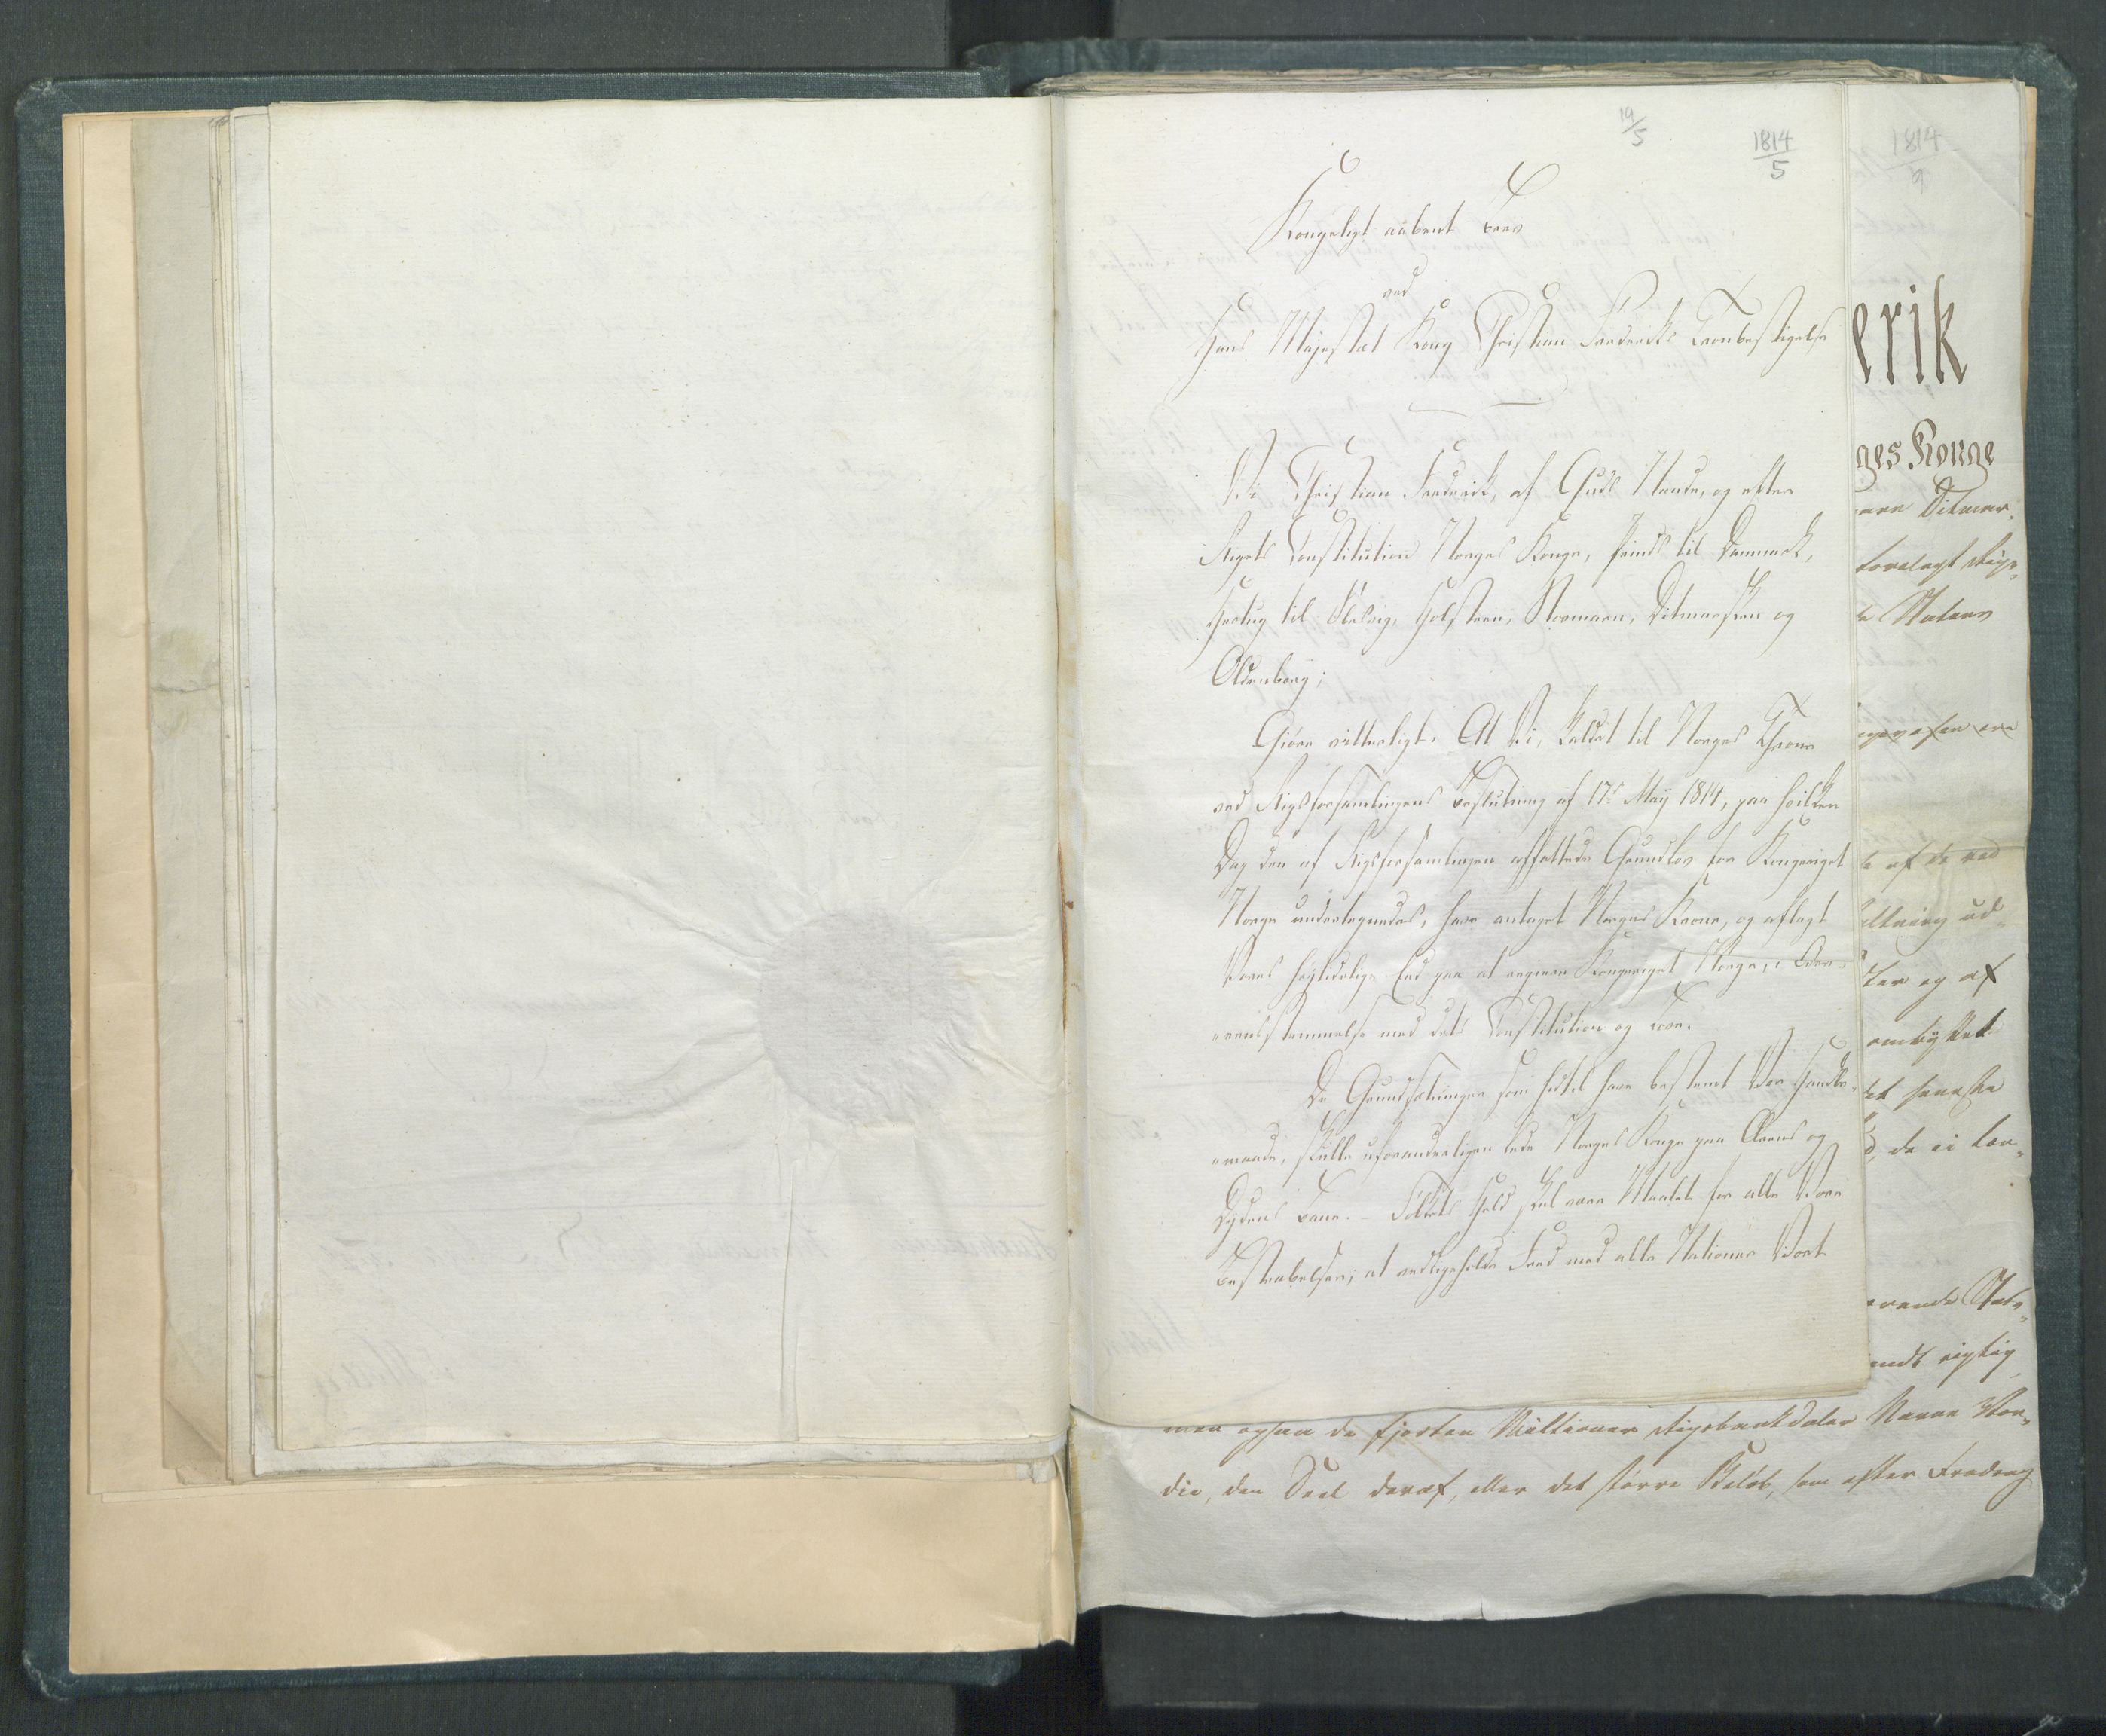 19/5
1814/5
1814/9
Kongeligt aabent Brev
ved
Hans Majestæt Kong Christian Frederiks Tronbestigelse
Vi Christian Frederik, af Guds Naade, og efter
Rigets Constitution Norges Konge, Prinds til Danmark,
Hertug til Slesvig, Holsteen, Stormarn, Ditmarsken og
Oldenborg;
Giøre vitterligt: At Vi, kaldet til Norges Throne
ved Rigsforsamlingens Beslutning af 17de May 1814, paa hvilken
Dag den af Rigsforsamlingen affattede Grundlov for Kongeriget
Norge undertegnedes, have antaget Norges Krone, og aflagt
Vores høytidelige Eed paa at regiere Kongeriget Norge, i Over-
eensstemmelse med dets Constitution og Love.
De Grundsætninger som hidtil have bestemt Vor Handle-
maade, skulle uforanderligen lede Norges Konge paa Ærens og
Dydens Bane. – Folkets Held skal være Maalet for alle Vore
Bestræbelser; at vedligeholde Fred med alle Nationer Vort
erik
ges Konge
Ditmar-
forelagt Rigs-
Staten
af de ved
ud-
og af
ombyttet
det seneste
de ei
Stats-
rigtig
men ogsaa de fjorten Millioner Rigsbankdaler Navne Vær-
die, den Deel deraf, eller det større Beløb, som efter Fradrag